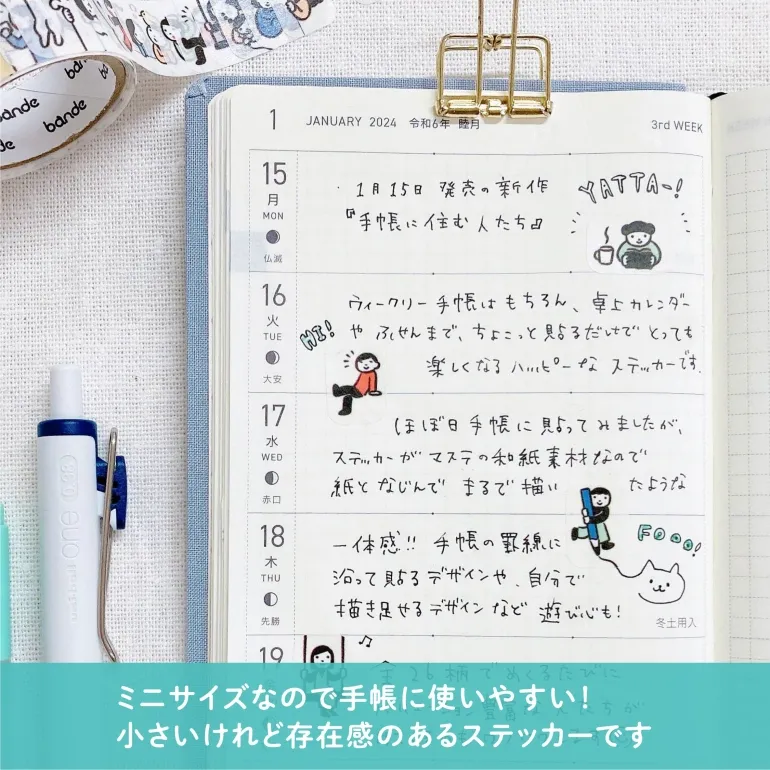 bande
bande
1 JANUARY 2024 令和6年 睦月 3rd WEEK
15
月
MON
仏滅
1月15日 発売の新作
『手帳に住む人たち』
YATTA~!
16
火
TUE
大安
HI!
ウィークリー手帳はもちろん、卓上カレンダー
や ふせんまで、ちょこっと貼るだけで とっても
楽しくなる ハッピーな ステッカーです.
17
水
WED
赤口
ほぼ日手帳に貼ってみましたが、
ステッカーが マステの和紙素材なので
紙と なじんで まるで描い たような
18
木
THU
先勝
一体感!! 手帳の罫線に
沿って貼るデザインや、自分で
描き足せるデザインなど 遊び心も!
FOOO!
冬土用入
19
♪
全26柄でめくるたびに
uni-ball one 0.38
ミニサイズなので手帳に使いやすい!
小さいけれど存在感のあるステッカーです